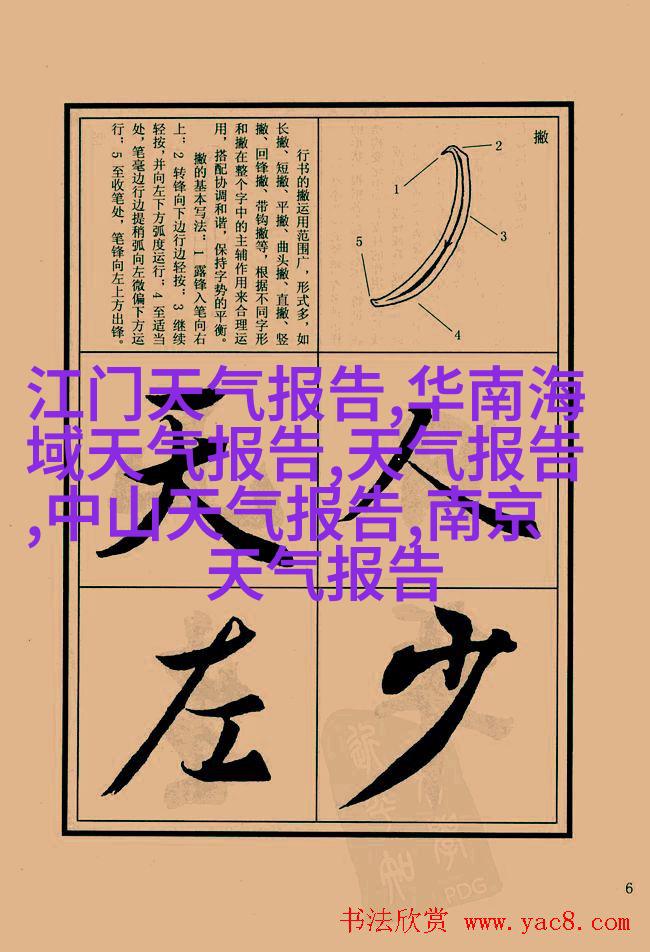 撇
1
2
3
4
5
行书的撇运用范围广，形式多，如
长撇、短撇、平撇、曲头撇、直撇、竖
撇、回锋撇、带钩撇等，根据不同字形
和撇在整个字中的主辅作用来合理运
用，搭配协调和谐，保持字势的平衡。
撇的基本写法：1 露锋入笔向右
上；2 转锋向下边行边轻按；3 继续
轻按，并向左下方弧度运行；4 至适当
处，笔毫边行边提稍弧向左微偏下方运
行；5 至收笔处，笔锋向左上方出锋。
江门天气报告,华南海
域天气报告,天气报告
,中山天气报告,南京
天气报告
人
天
少
左
PDG
6
书法欣赏 www.yac8.com